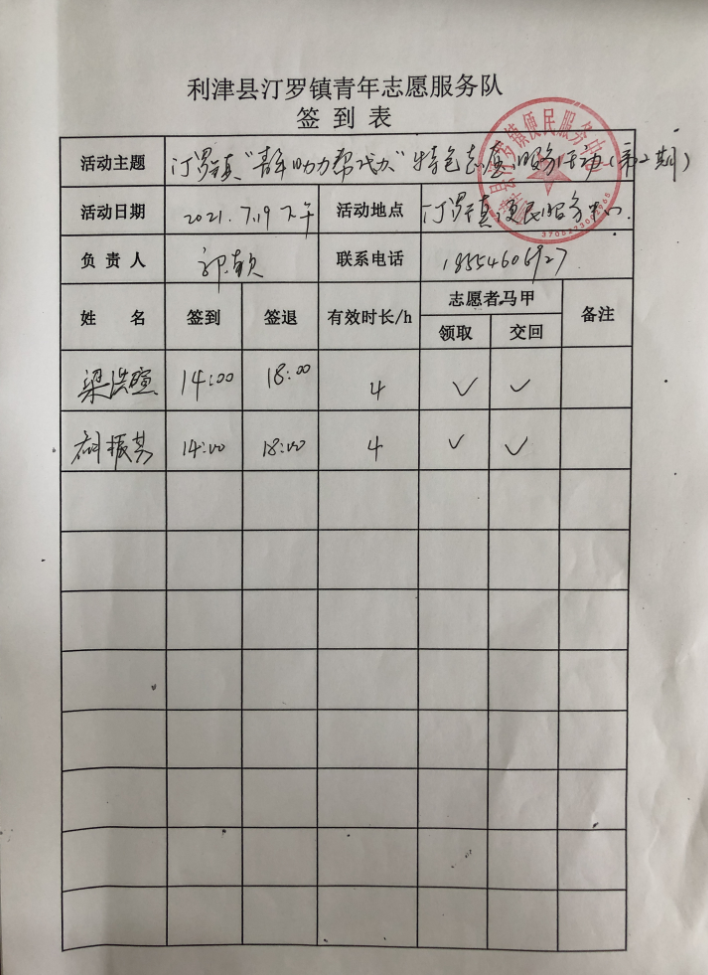 利津县汀罗镇青年志愿服务队
签到表
活动主题 汀罗镇"青年助力帮代办"特色志愿服务活动(第2期)
活动日期 2021.7.19下午 活动地点 汀罗镇便民服务中心.
负责人 联系电话 18554606927
姓名 签到 签退 有效时长/h 志愿者马甲 备注
领取 交回
梁洪暄 14:00 18:00 4 ✓ ✓
振其 14:00 18:00 4 ✓ ✓